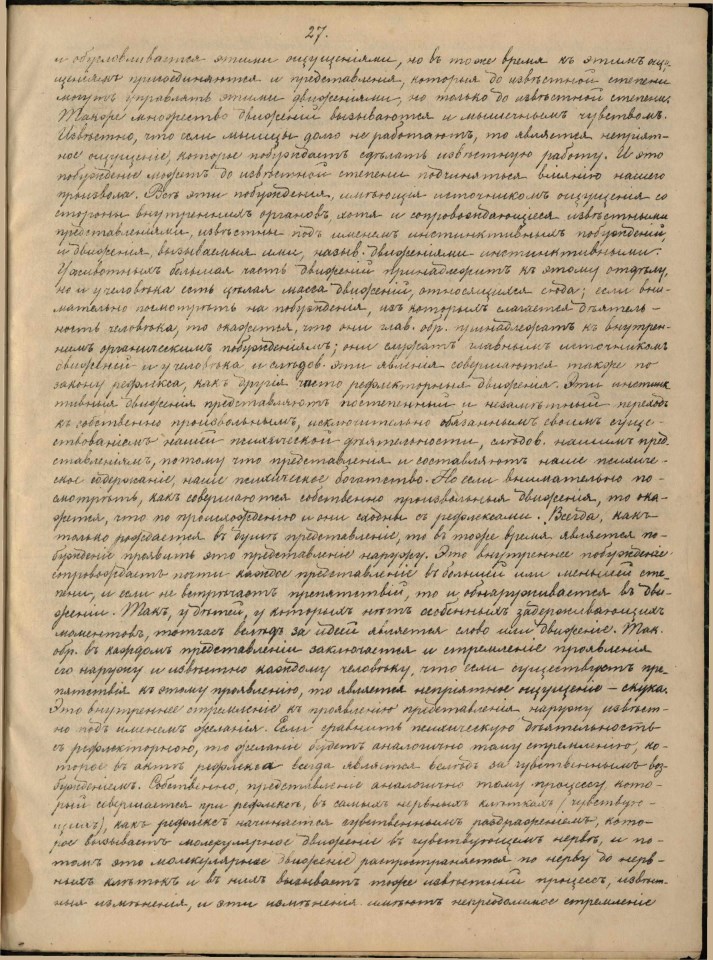 27.
и обусловливается этими ощущеніями, но въ тоже время къ этимъ ощу-
щеніямъ присоединяются и представленія, которыя до извѣстной степени
могутъ управлять этими движеніями, но только до извѣстной степени.
Также множество движеній вызываются и мышечнымъ чувствомъ.
Извѣстно, что если мышцы долго не работаютъ, то является непріят-
ное ощущеніе, которое побуждаетъ сдѣлать извѣстную работу. И это
побужденіе можетъ до извѣстной степени подчиняться вліянію нашего
произвола. Всѣ эти побужденія, имѣющія источникомъ ощущенія со
стороны внутреннихъ органовъ, хотя и сопровождающіеся извѣстными
представленіями, извѣстны подъ именемъ инстинктивныхъ побужденій,
и движенія, вызываемыя ими, назыв. движеніями инстинктивными.
У животныхъ большая часть движеній принадлежитъ къ этому отдѣлу,
но и у человѣка есть цѣлая масса движеній, относящихся сюда; если вни-
мательно посмотрѣть на побужденія, изъ которыхъ слагается дѣятель-
ность человѣка, то окажется, что они глав. обр. принадлежатъ къ внутрен-
нимъ органическимъ побужденіямъ; они служатъ главнымъ источникомъ
движеній и у человѣка и слѣдов. эти явленія совершаются также по
закону рефлекса, какъ другія чисто рефлекторныя движенія. Эти инстинк
тивныя движенія представляютъ постепенный и незамѣтный переходъ
къ собственно произвольнымъ, исключительно обязаннымъ своимъ суще-
ствованіемъ нашей психической дѣятельности, слѣдов. нашимъ пред-
ставленіямъ, потому что представленія и составляютъ наше психиче-
ское содержаніе, наше психическое богатство. Но если внимательно по-
смотрѣть, какъ совершаются собственно произвольныя движенія, то ока-
жется, что по происхожденію и они сходны съ рефлексами. Всегда, какъ
только рождается въ душѣ представленіе, то въ тоже время является по-
бужденіе проявить это представленіе наружу. Это внутреннее побужденіе
сопровождаетъ почти каждое представленіе въ большей или меньшей сте-
пени, и если не встрѣчаетъ препятствій, то и обнаруживается въ дви-
женіи. Такъ, у дѣтей, у которыхъ нѣтъ особенныхъ задерживающихъ
моментовъ, тотчасъ вслѣдъ за идеей является слово или движеніе. Так.
обр. въ каждомъ представленіи заключается и стремленіе проявленія
его наружу и извѣстно каждому человѣку, что если существуютъ пре-
пятствія къ этому проявленію, то является непріятное ощущеніе – скука.
Это внутреннее стремленіе къ проявленію представленія наружу извѣст-
но подъ именемъ желанія. Если сравнить психическую дѣятельность
съ рефлекторною, то желаніе будетъ аналогично тому стремленію, ко-
торое въ актѣ рефлекса всегда является вслѣдъ за чувственнымъ воз-
бужденіемъ. Собственно, представленіе аналогично тому процессу кото-
рый совершается при рефлексѣ, въ самыхъ нервныхъ клѣткахъ (чувствую-
щихъ), какъ рефлексъ начинается чувственнымъ раздраженіемъ, кото-
рое вызываетъ молекулярное движеніе въ чувствующемъ нервѣ, и по-
томъ это молекулярное движеніе распространяется по нерву до нерв-
ныхъ клѣтокъ и въ нихъ вызываетъ тоже извѣстный процессъ, извѣст-
ныя измѣненія, и эти измѣненія имѣютъ непреодолимое стремленіе